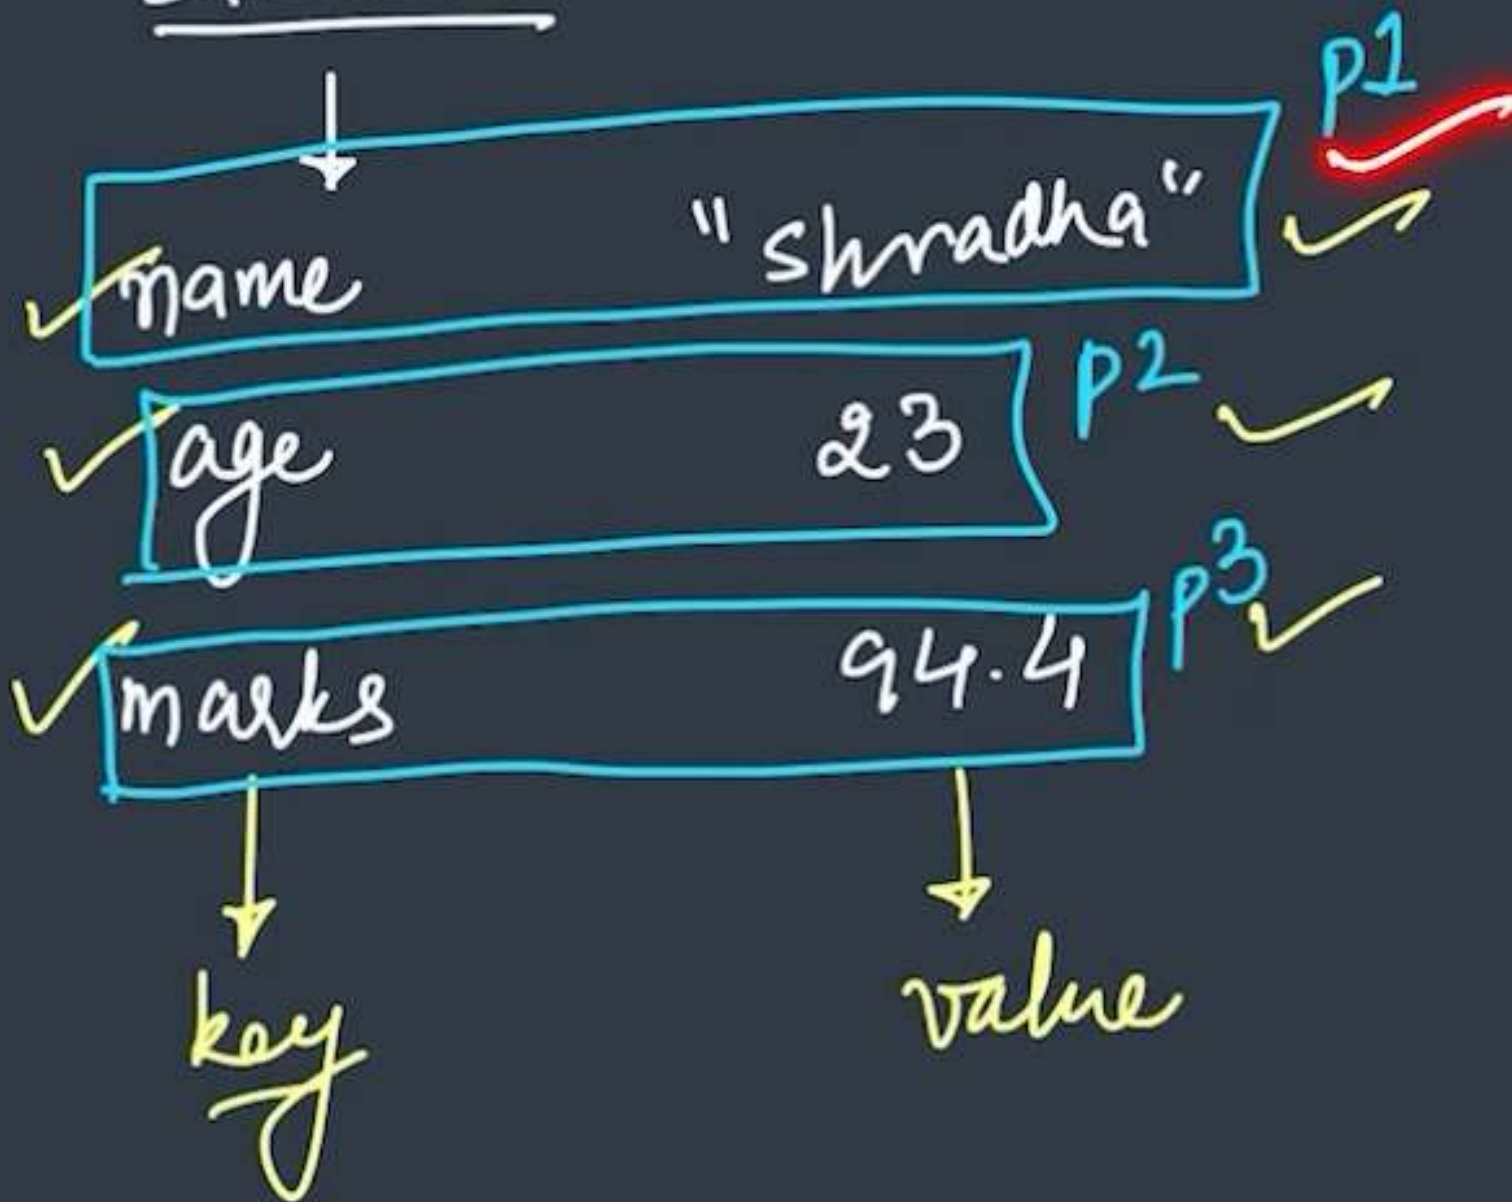 p1
name "shradha"
age 23 p2
marks 94.4 p3
key value